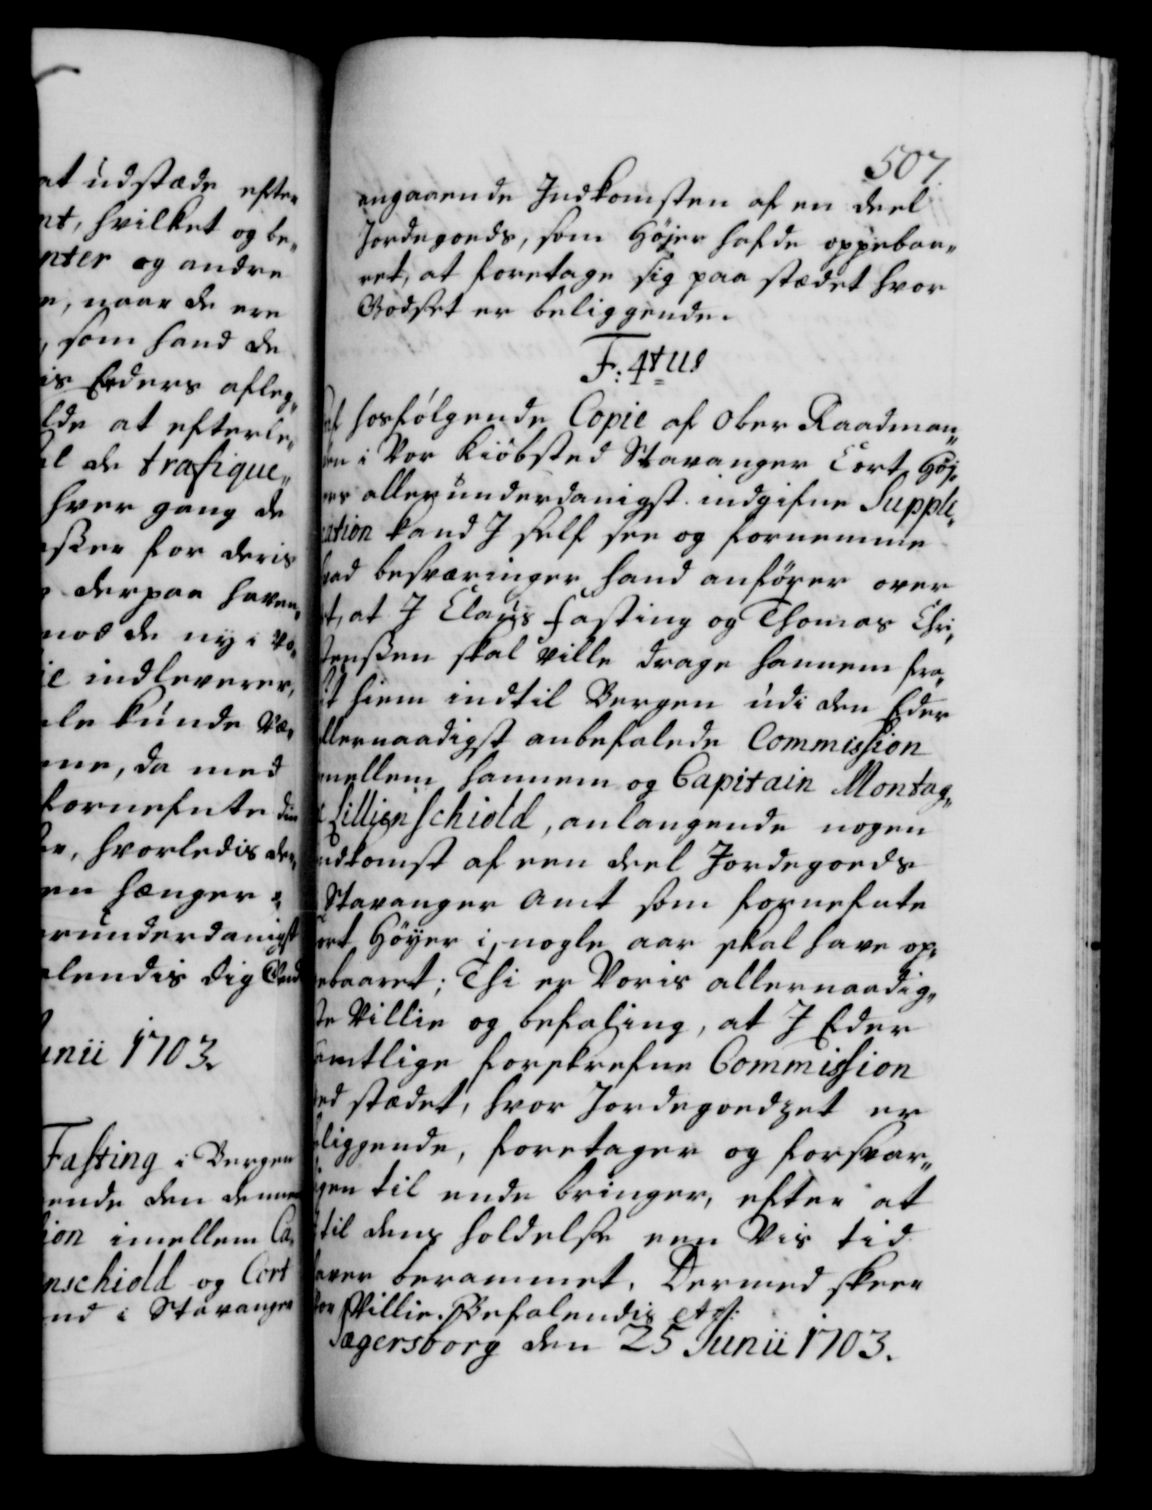 at udstæde efter
nt, hvilket og be„
nter og andre
e, naar de ere
, som hand de
is Eeders afleg„
lde at efterle„
al de trafique„
hver gang de
esker for deris
derpaa haven„
mod de ny i Vo„
ie indleverer,
ale kunde Væ„
ene, da med
fornefnte din
er, hvorledis de„
en hænger
erunderdanigst
alendis dig Gud
unii 1703.
Fasting i Bergen
ende den dennem
ion imellem Ca„
nschiold og Cort
nd i Stavanger
507.
angaaende Indkomsten af en deel
Jordegoeds, som Høyer hafde oppebaa„
ret, at foretage sig paa stædet hvor
Godset er beliggende.
F: 4tus
Af hosfølgende Copie af Ober Raadman„
den i Vor Kiöbsted Stavanger Cort Høy„
ers allerunderdanigst indgifne Suppli„
cation kand I self see og fornemme
hvad besværinger hand anfører over
at, at I Claus Fasting og Thomas Chri„
stenssen skal ville drage hannem fra
sit hiem indtil Bergen udi den Eder
allernaadigst anbefalede Commission
imellem hannem og Capitain Montag„
ne Lillienschiold, anlangende nogen
Indkomst af een deel Jordegoeds
i Stavanger Amt som fornefnte
Cort Høyer i nogle aar skal have op„
pebaaret; Thi er Voris allernaadig„
ste Villie og befaling, at I Eder
samtlige forskrefne Commission
ved stædet, hvor Jordegoedzet er
beliggende, foretager og forsvar„
ligen til ende bringer, efter at
I til dens holdelse een Vis tid
haver berammet. Dermed skeer
Vor Villie. Befalendis etc:
Jægersborg den 25 Junii 1703.